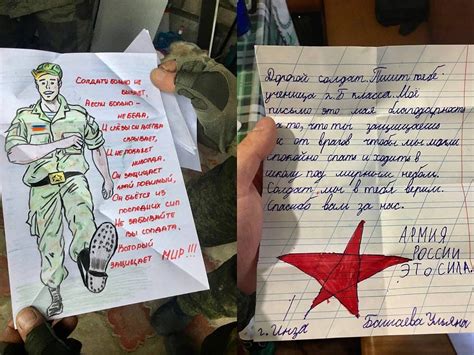 Солдату больно не
бывает,
А если больно –
не беда,
И слёзы он всегда
скрывает,
И не поплачет
никогда.
Он защищает
край родимый,
Он бьётся из
последних сил
Не забывайте
вы солдата,
Который
защищает МИР!!!
Дорогой солдат. Пишет тебе
ученица 2 Б класса. Моё
письмо это моя благодарность
за то, что ты защищаешь
нас от врагов чтобы мы могли
спокойно спать и ходить в
школу под мирным небом.
Солдат, мы в тебя верим.
Спасибо вам за нас.
АРМИЯ
РОССИИ
ЭТО СИЛА!
г. Инза Ульяна